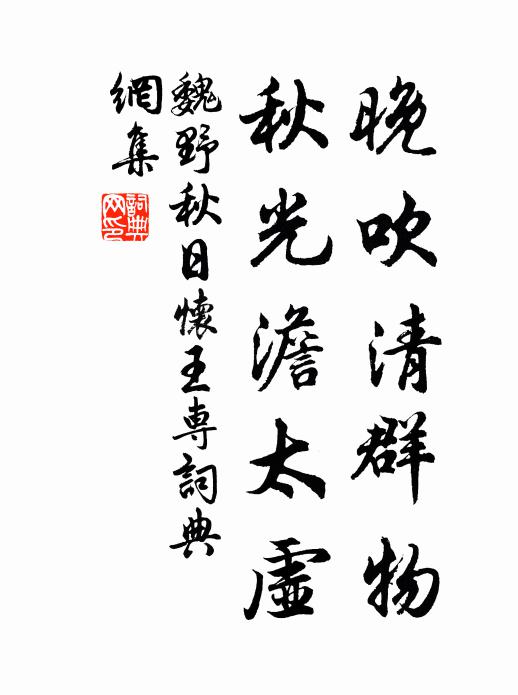 晚吹清群物
秋光澹太虛
魏野秋日懷王専詞典
網集
詞典網印